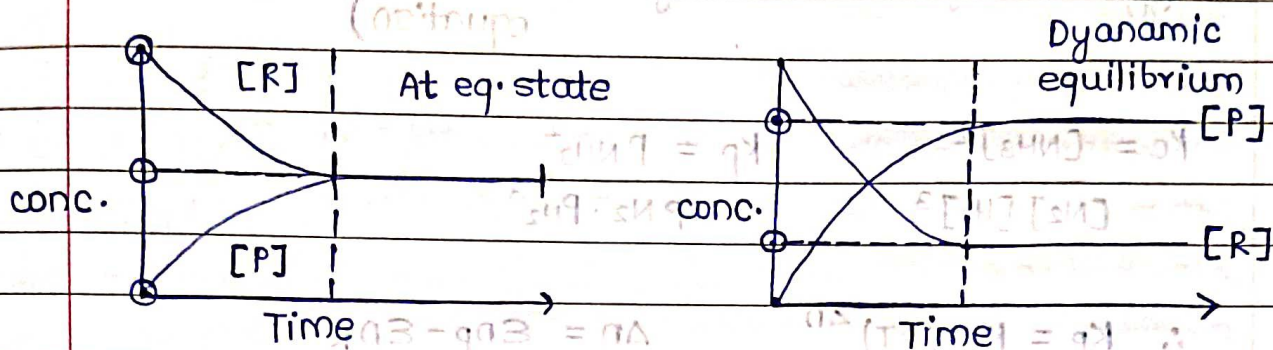 [R]
At eq. state
conc.
[P]
Time
Dyanamic
equilibrium
[P]
conc.
[R]
Time